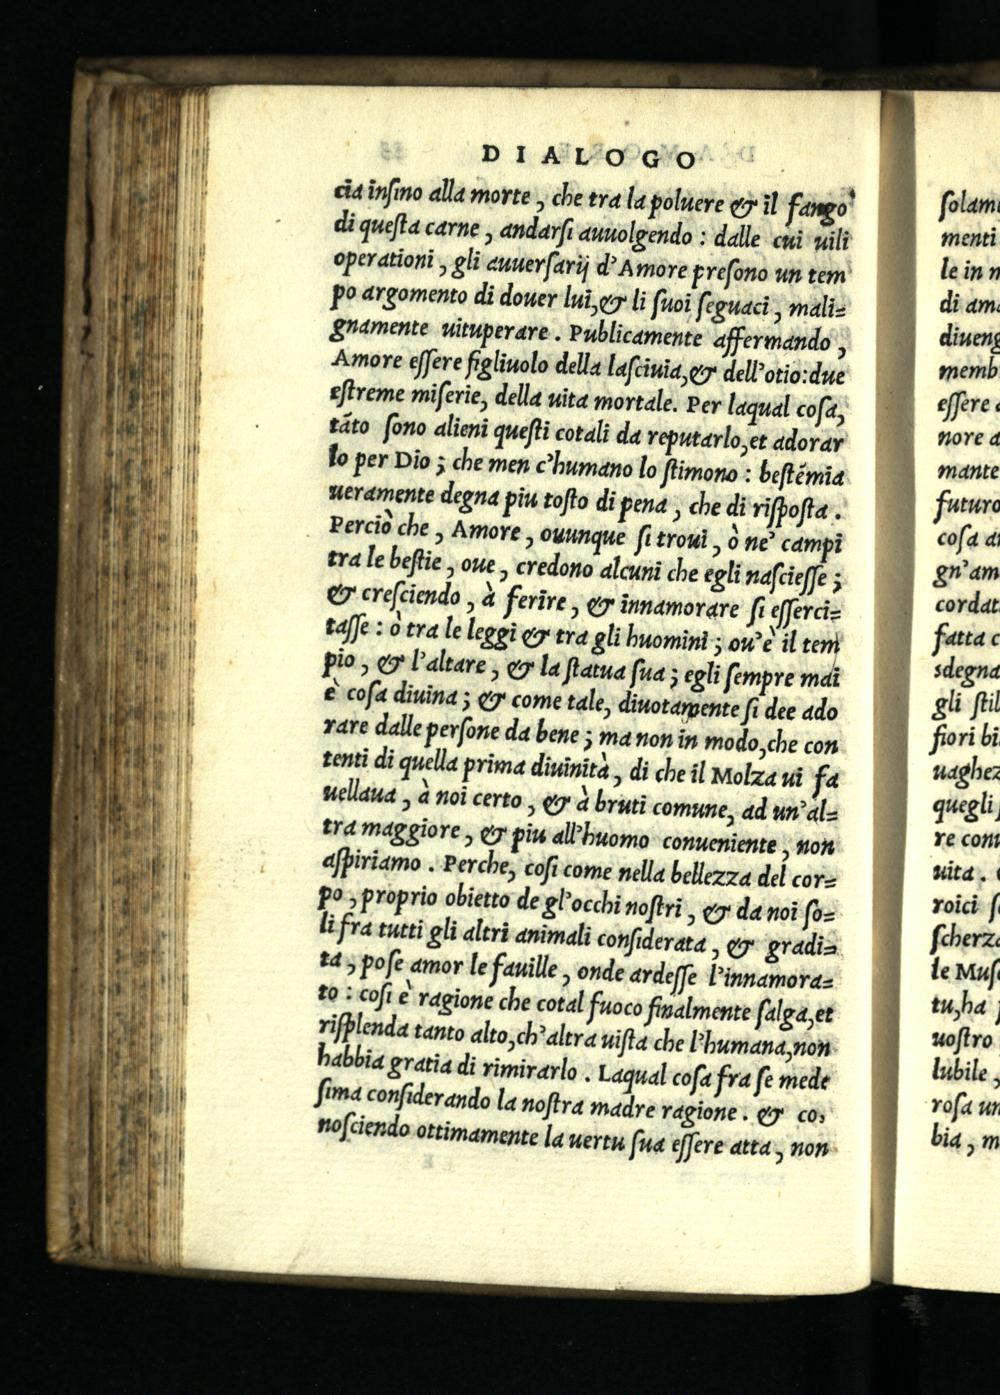 DIALOGO
cia inſino alla morte, che tra la poluere & il fango
di queſta carne, andarſi auuolgendo: dalle cui uili
operationi, gli auuerſarij d'Amore preſono un tem
po argomento di douer lui,& li ſuoi ſeguaci, mali=
gnamente uituperare. Publicamente affermando,
Amore eſſere figliuolo della laſciuia,& dell'otio:due
eſtreme miſerie, della uita mortale. Per laqual coſa,
tāto ſono alieni queſti cotali da reputarlo,et adorar
lo per Dio; che men c'humano lo ſtimono: beſtēmia
ueramente degna piu toſto di pena, che di riſpoſta.
Perciò che, Amore, ouunque ſi troui, ò ne' campi
tra le beſtie, oue, credono alcuni che egli naſcieſſe;
& creſciendo, à ferire, & innamorare ſi eſſerci=
taſſe: ò tra le leggi & tra gli huomini; ou'è il tem
pio, & l'altare, & la ſtatua ſua; egli ſempre mai
è coſa diuina; & come tale, diuotamente ſi dee ado
rare dalle perſone da bene; ma non in modo,che con
tenti di quella prima diuinità, di che il Molza ui fa
uellaua, à noi certo, & à bruti comune, ad un'al=
tra maggiore, & piu all'huomo conueniente, non
aſpiriamo. Perche, coſi come nella bellezza del cor=
po, proprio obietto de gl'occhi noſtri, & da noi ſo=
li fra tutti gli altri animali conſiderata, & gradi=
ta, poſe amor le fauille, onde ardeſſe l'innamora=
to: coſi è ragione che cotal fuoco finalmente ſalga,et
riſplenda tanto alto,ch'altra uiſta che l'humana,non
habbia gratia di rimirarlo. Laqual coſa fra ſe mede
ſima conſiderando la noſtra madre ragione. & co,
noſciendo ottimamente la uertu ſua eſſere atta, non
ſolam
menti
le in
di am
diueng
memb
eſſere
nore
mante
futuro
coſa
gn'am
cordat
fatta
sdegna
gli ſtil
fiori bi
uaghez
quegli
re con
uita.
roici
ſcherza
le Muſ
tu,ha
uoſtro
lubile,
roſa un
bia, m